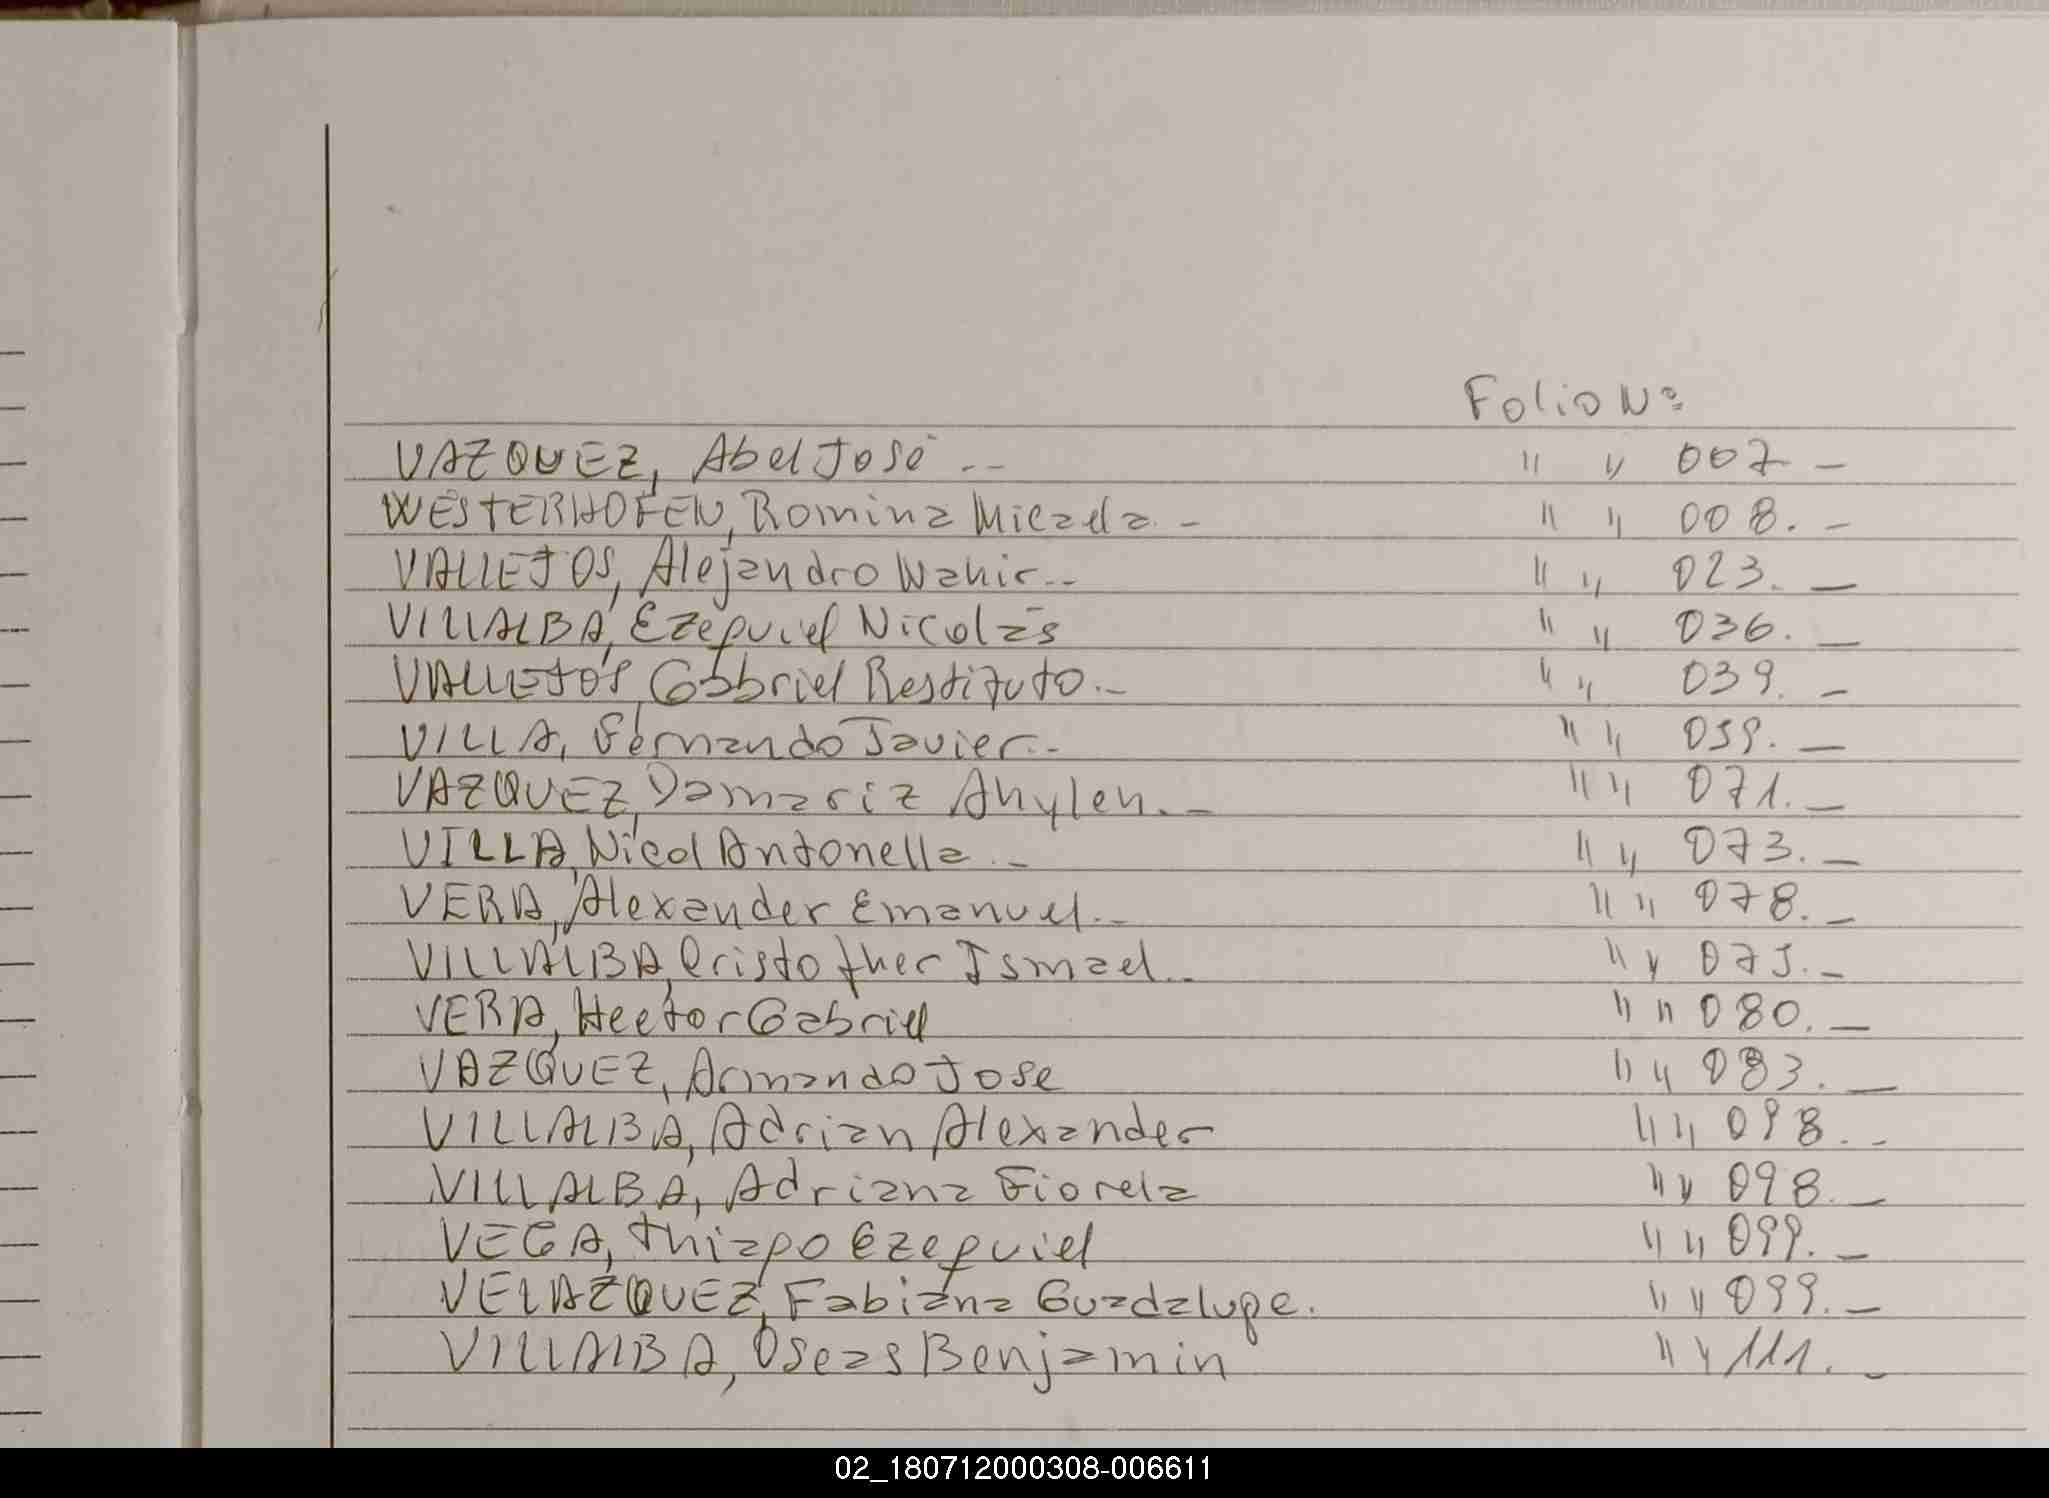 Folio Nº:
VAZQUEZ, Abel José.-- " " 007 -
WESTERHOFEN, Romina Micaela.- " " 008. -
VALLEJOS, Alejandro Nahir.-- " " 023. -
VILLALBA, Ezequiel Nicolás " " 036. -
VALLEJOS, Gabriel Restituto.- " " 039. -
VILLA, Fernando Javier.-- " " 059. -
VAZQUEZ, Damariz Anylen.- " " 071. -
VILLA, Nicol Antonella.- " " 073. -
VERA, Alexander Emanuel.-- " " 078. -
VILLALBA, Cristofher Ismael.-- " " -
VERA, Hector Gabriel " " 080. -
VAZQUEZ, Armando Jose " " 083. -
VILLALBA, Adrian Alexander " " 098. --
VILLALBA, Adriana Fiorela " " 098. -
VEGA, Thiapo Ezequiel " " 099. -
VELAZQUEZ, Fabiana Guadalupe. " " 099. -
VILLALBA, Oseas Benjamin " " 111. -
02_180712000308-006611